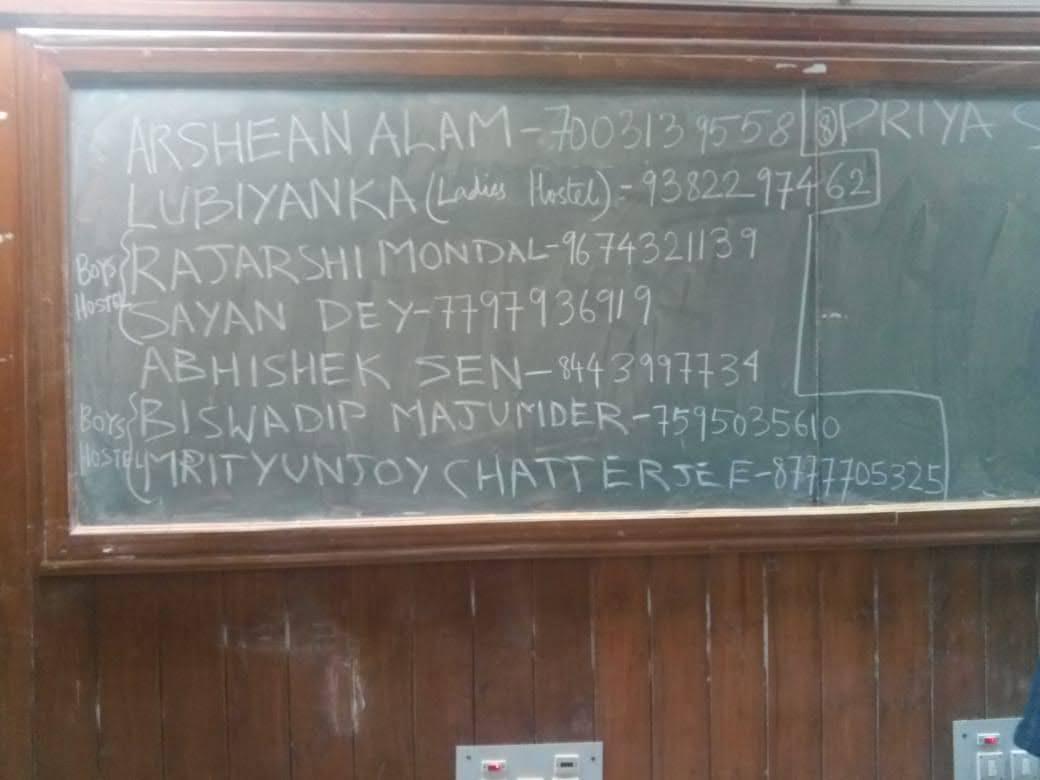 ARSHEAN ALAM - 7003139558
LUBIYANKA (Ladies Hostel) :- 9382297462
RAJARSHI MONDAL - 9674321139
BOYS HOSTEL
SAYAN DEY - 7797936919
ABHISHEK SEN - 8443997734
BISWADIP MAJUMDER - 7595035610
BOYS HOSTEL
MRITYUNJOY CHATTERJEE - 8777705325
⑧ PRIYA S